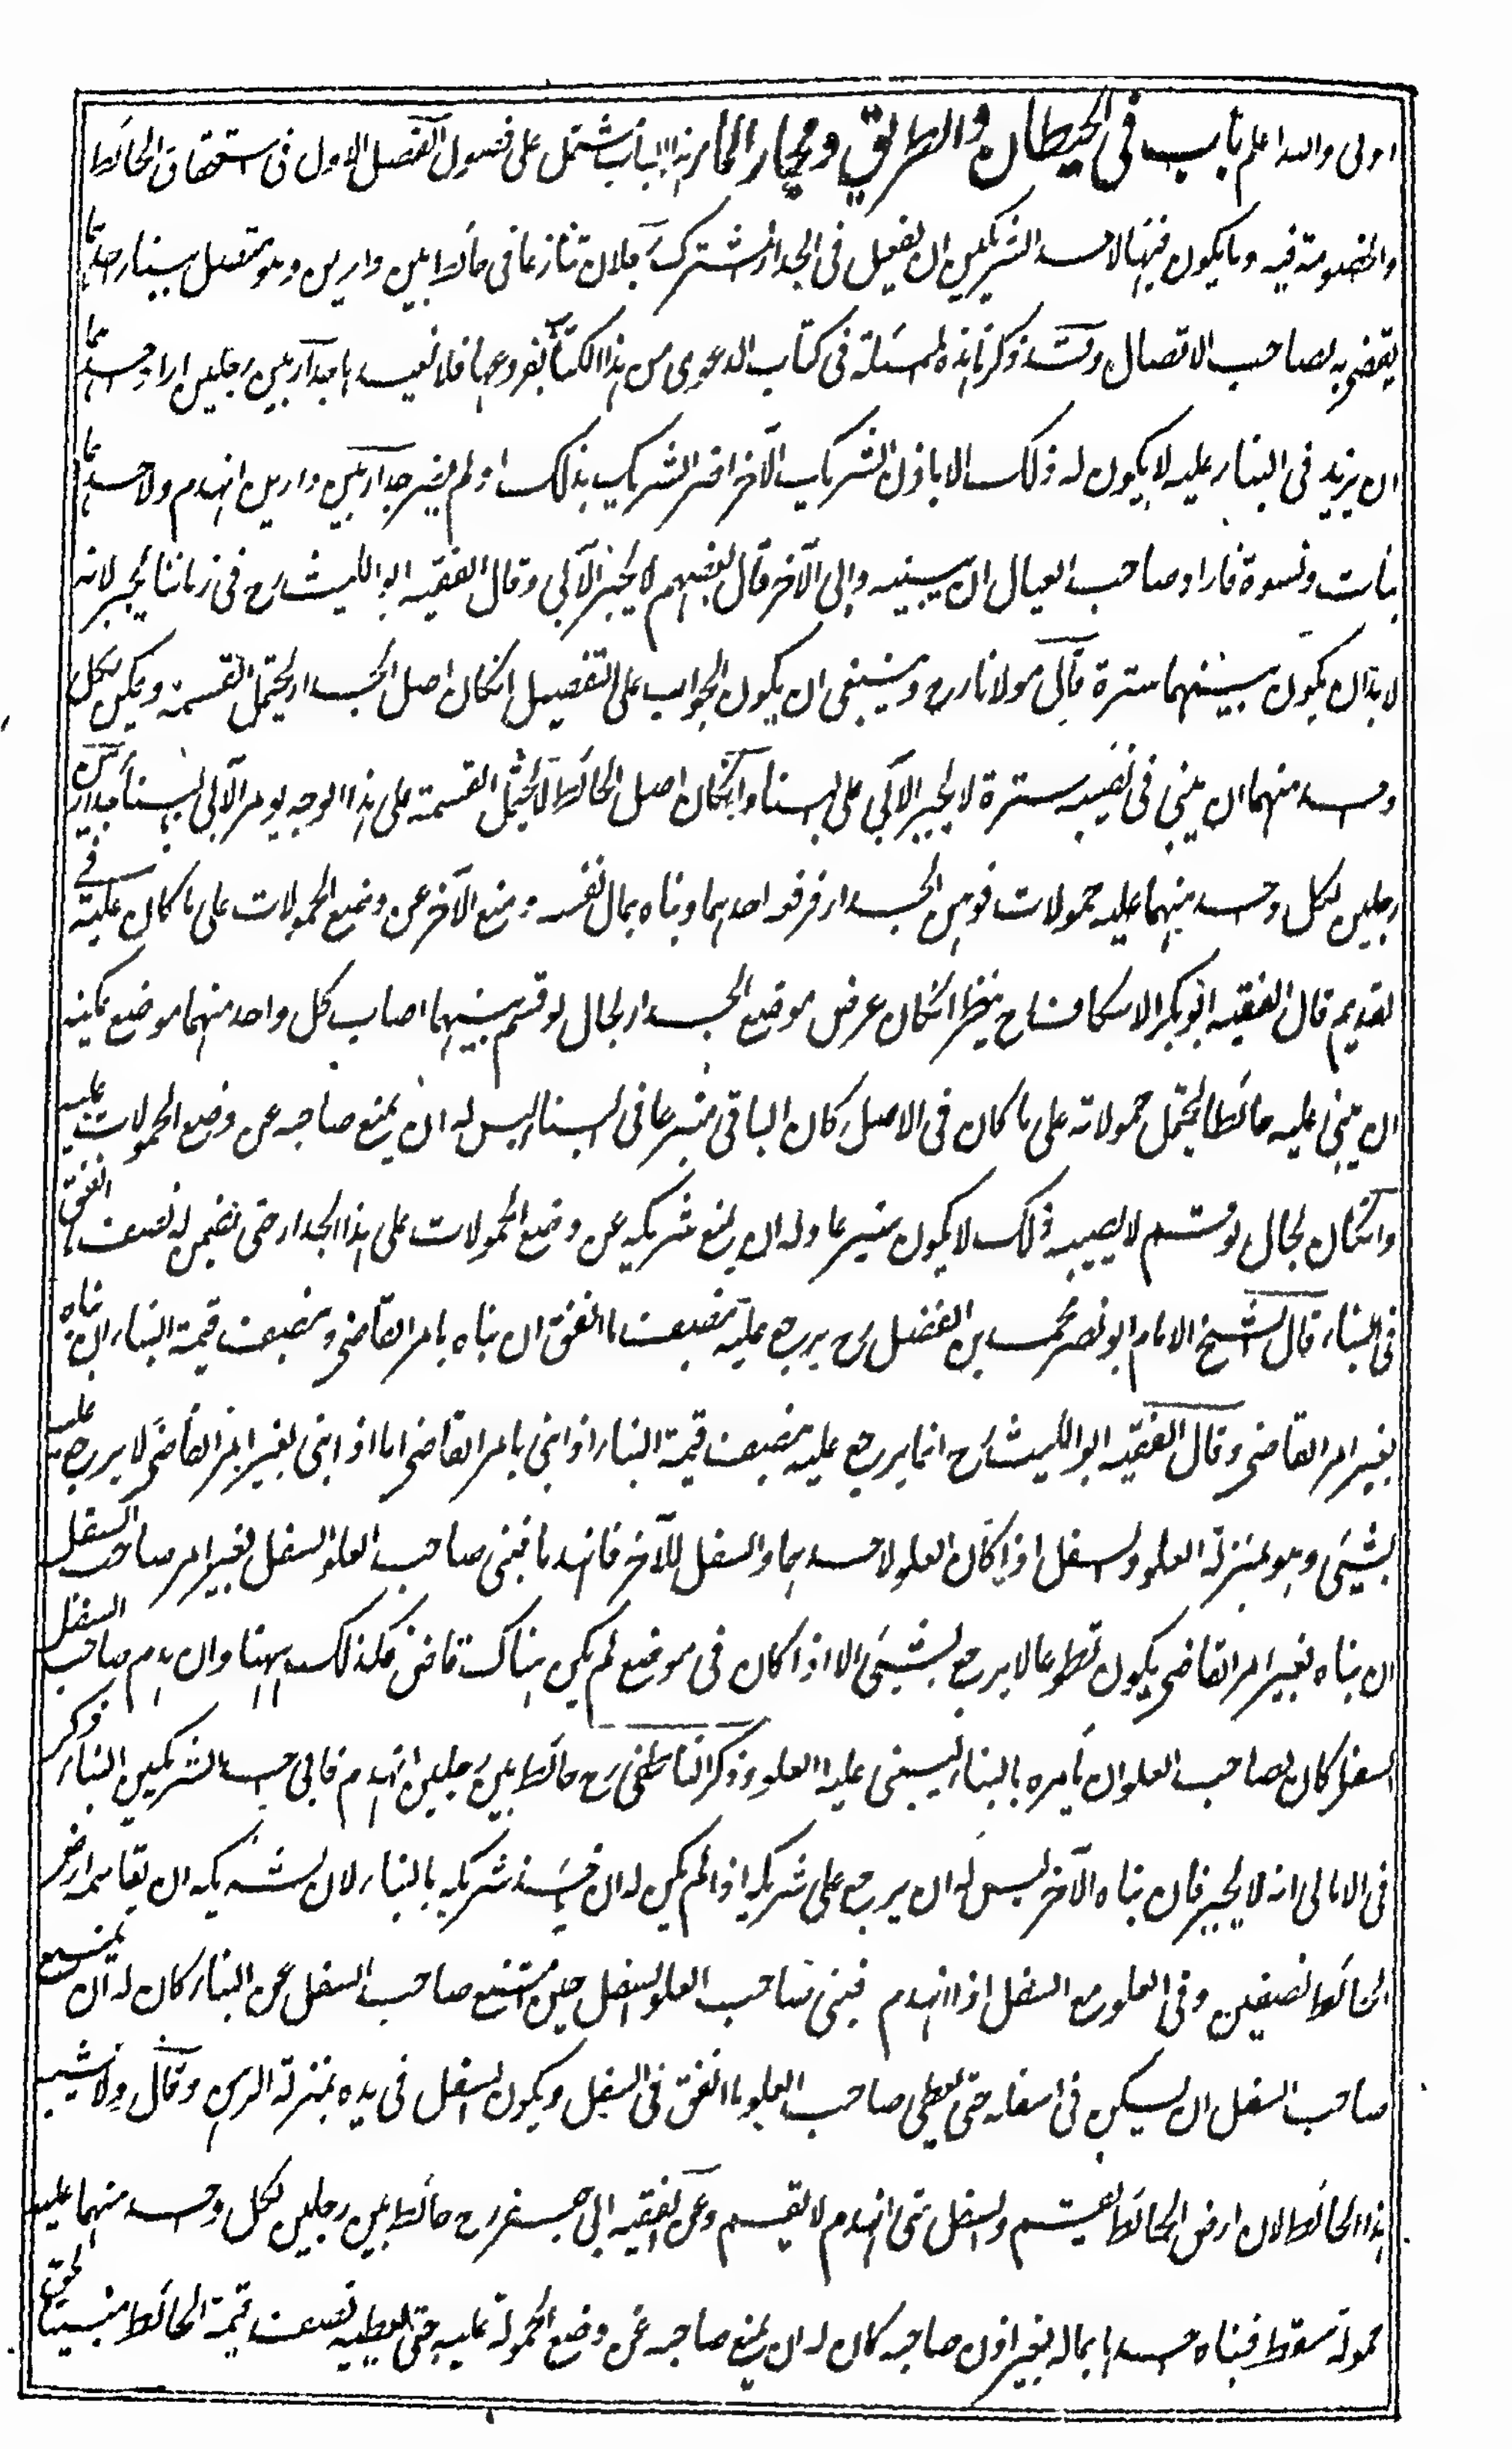 اولى والله اعلم باب فى الحيطان والطريق ومجارى الماء هذا الباب يشتمل على فصول الفصل الاول فى استحقاق الحائط
والخصومة فيه وما يكون فيها لاحد الشريكين ان يفعل فى الجدار المشترك رجلان تنازعا فى حائط بين دارين وهو متصل ببناء احدهما
يقضى به لصاحب الاتصال وقد ذكرنا هذه المسئلة فى كتاب الدعوى من هذا الكتاب بفروعها فلا نعيدها جدار بين رجلين اراد احدهما
ان يزيد فى البناء عليه لا يكون له ذلك الا باذن الشريك الآخر اضر الشريك بذلك او لم يضر جدار بين دارين انهدم ولاحدهما
بنات ونسوة فاراد صاحب العيال ان يبنيه وابى الآخر قال بعضهم لا يجبر الآبى وقال الفقيه ابو الليث رح فى زماننا يجبر لانه
لا بد ان يكون بينهما سترة قال مولانا رح وينبغى ان يكون الجواب على التفصيل انكان اصل الجدار يحتمل القسمة ويمكن لكل
واحد منهما ان يبنى فى نصيبه سترة لا يجبر الآبى على البناء وانكان اصل الحائط لا يحتمل القسمة على هذا الوجه يومر الآبى بالبناء جدار بين
رجلين لكل واحد منهما عليه حمولات فوهن الجدار فرفعه احدهما وبناه بمال نفسه ومنع الآخر عن وضع الحمولات على ما كان عليه فى
القديم قال الفقيه ابو بكر الاسكاف رح ينظر انكان عرض موضع الجدار بحال لو قسم بينهما اصاب كل واحد منهما موضع يمكنه
ان يبنى عليه حائطا يحتمل حمولاته على ما كان فى الاصل كان البانى متبرعا فى البناء ليس له ان يمنع صاحبه عن وضع الحمولات عليه
وانكان بحال لو قسم لا يصيبه ذلك لا يكون متبرعا وله ان يمنع شريكه عن وضع الحمولات على هذا الجدار حتى يضمن له نصف ما انفق
فى البناء قال الشيخ الامام ابو نصر محمد بن الفضل رح يرجع عليه بنصف ما انفق ان بناه بامر القاضى وبنصف قيمة البناء ان بناه
بغير امر القاضى وقال الفقيه ابو الليث رح انما يرجع عليه بنصف قيمة البناء اذا بنى بامر القاضى اما اذا بنى بغير امر القاضى لا يرجع عليه
بشيئ وهو بمنزلة العلو والسفل اذا كان العلو لاحدهما والسفل للآخر فانهدما فبنى صاحب العلو السفل بغير امر صاحب السفل
ان بناه بغير امر القاضى يكون تطوعا لا يرجع بشيئ الا اذا كان فى موضع لم يكن هناك قاض فكذلك ههنا وان هدم صاحب السفل
السفل كان لصاحب العلو ان يأمره بالبناء ليبنى عليه العلو وذكر الناطفى رح حائط بين رجلين انهدم فابى احد الشريكين البناء ذكر
فى الامالى انه لا يجبر فان بناه الآخر ليس له ان يرجع على شريكه اذا لم يكن له ان يأخذ شريكه بالبناء لان لشريكه ان يقاسمه ارض
الحائط نصفين وفى العلو مع السفل اذا انهدم فبنى صاحب العلو السفل حين امتنع صاحب السفل عن البناء كان له ان يمنع
صاحب السفل ان يسكن فى اسفله حتى يعطى صاحب العلو ما انفق فى السفل ويكون السفل فى يده بمنزلة الرهن وقال ولا يشبه
هذا الحائط لان ارض الحائط يقسم والسفل متى انهدم لا يقسم وعن الفقيه ابى جعفر رح حائط بين رجلين لكل واحد منهما عليه
حمولة سقط فبناه احدهما بماله بغير اذن صاحبه كان له ان يمنع صاحبه عن وضع الحمولة عليه حتى يعطيه نصف قيمة الحائط مبنيا لحق